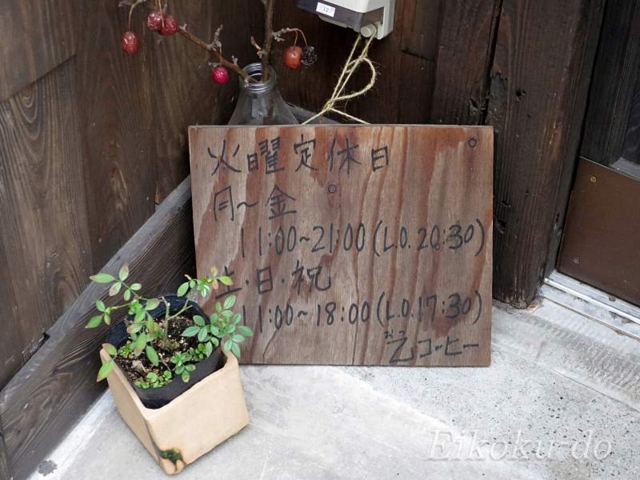 火曜定休日
月～金
11:00～21:00(L.O.20:30)
土・日・祝
11:00～18:00(L.O.17:30)
乙コーヒー
Eikoku-do